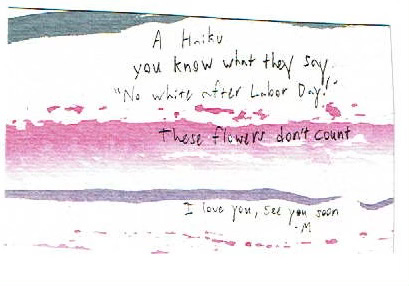 A Haiku
you know what they say
"No white after Labor Day!"
These flowers don't count
I love you, see you soon
-M